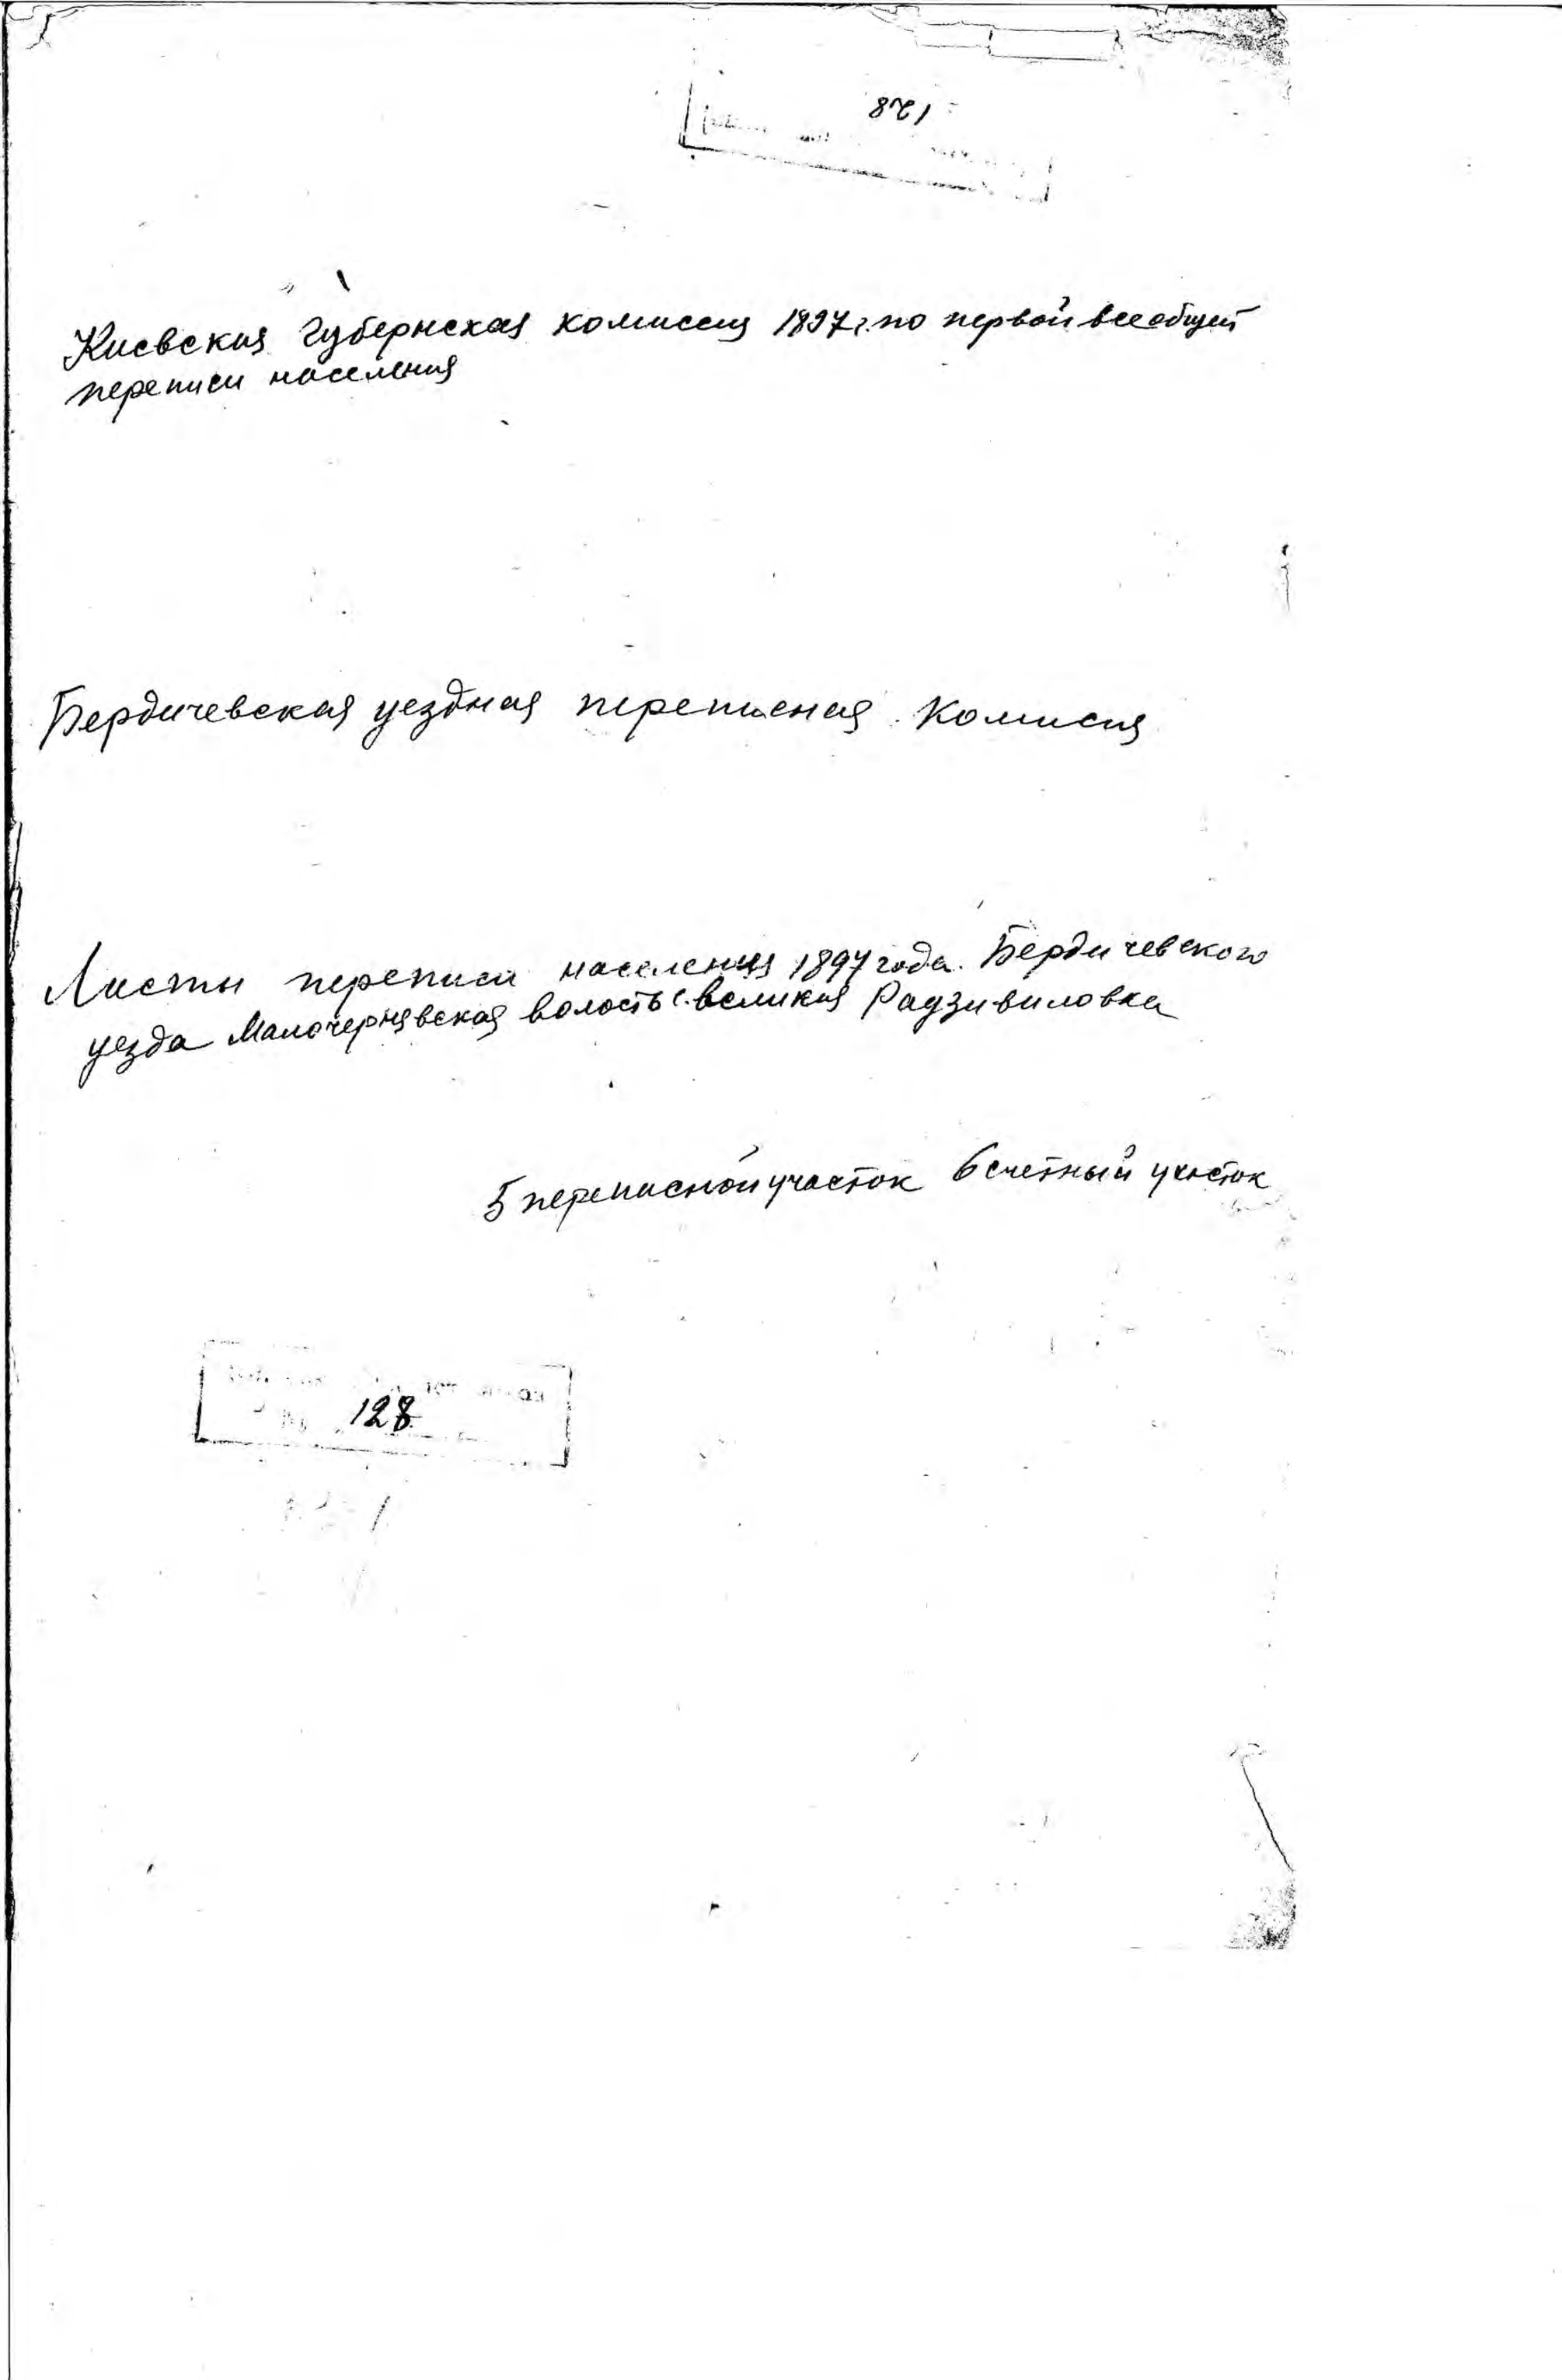 128
Киевская губернская комиссия 1897 г. по первой всеобщей
переписи населения
Бердичевская уездная переписная комисия
Листы переписи населения 1897 года. Бердичевского
уезда Малочернявская волость с. великая Радзивиловка
5 переписной участок 6 счетный участок
128